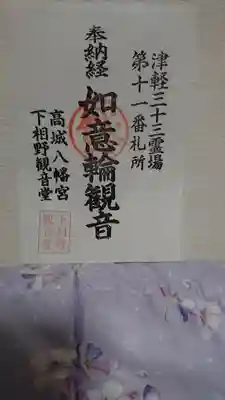 津軽三十三霊場
第十一番札所
奉納経
如意輪観音
高城八幡宮
下相野観音堂